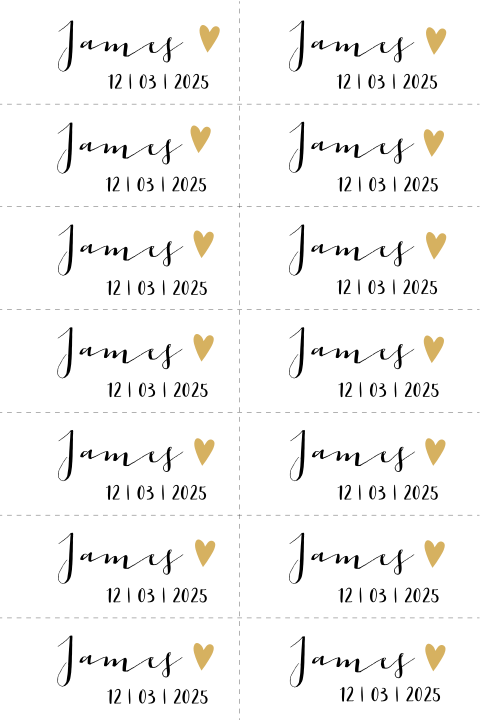 James
James
12 | 03 | 2025
12 | 03 | 2025
James
James
12 | 03 | 2025
12 | 03 | 2025
James
James
12 | 03 | 2025
12 | 03 | 2025
James
James
12 | 03 | 2025
12 | 03 | 2025
James
James
12 | 03 | 2025
12 | 03 | 2025
James
James
12 | 03 | 2025
12 | 03 | 2025
James
James
12 | 03 | 2025
12 | 03 | 2025